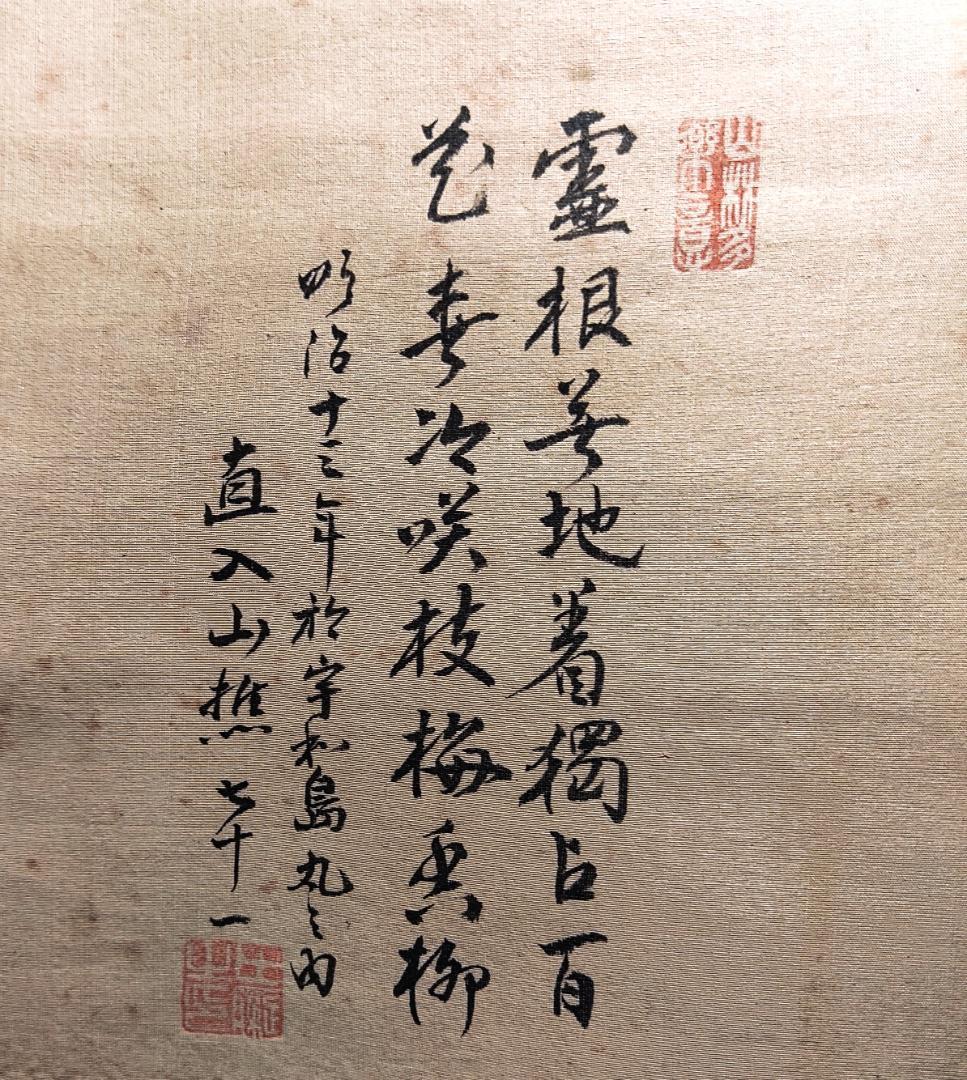 靈根無地着獨占百
花春冷咲枝梅香柳
明治十三年於宇和島丸之内
直入山樵七十一